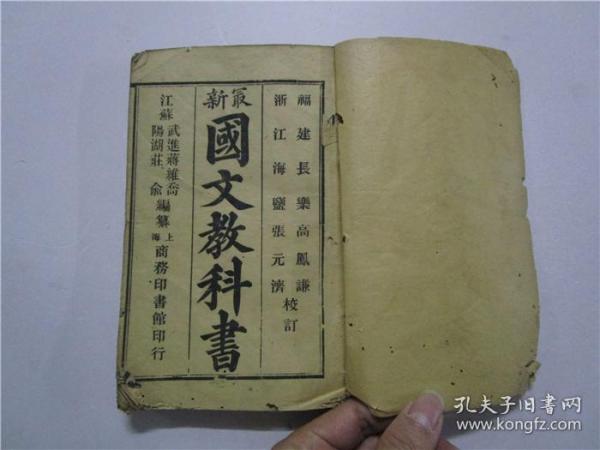 福建長樂高鳳謙
浙江海鹽張元濟
校訂
最新
國文教科書
江蘇
武進蔣維喬
陽湖莊俞
編纂
上海
商務印書館印行
孔夫子旧书网
www.kongfz.com